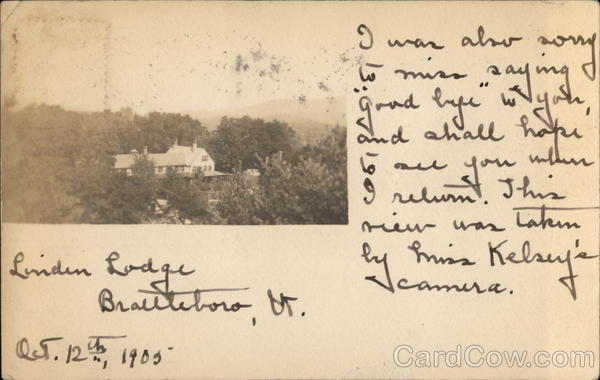 I was also sorry
to miss saying
"good bye" to you,
and shall hope
to see you when
I return. This
view was taken
by Miss Kelsey's
camera.
Linden Lodge
Brattleboro, Vt.
Oct. 12th, 1905
CardCow.com